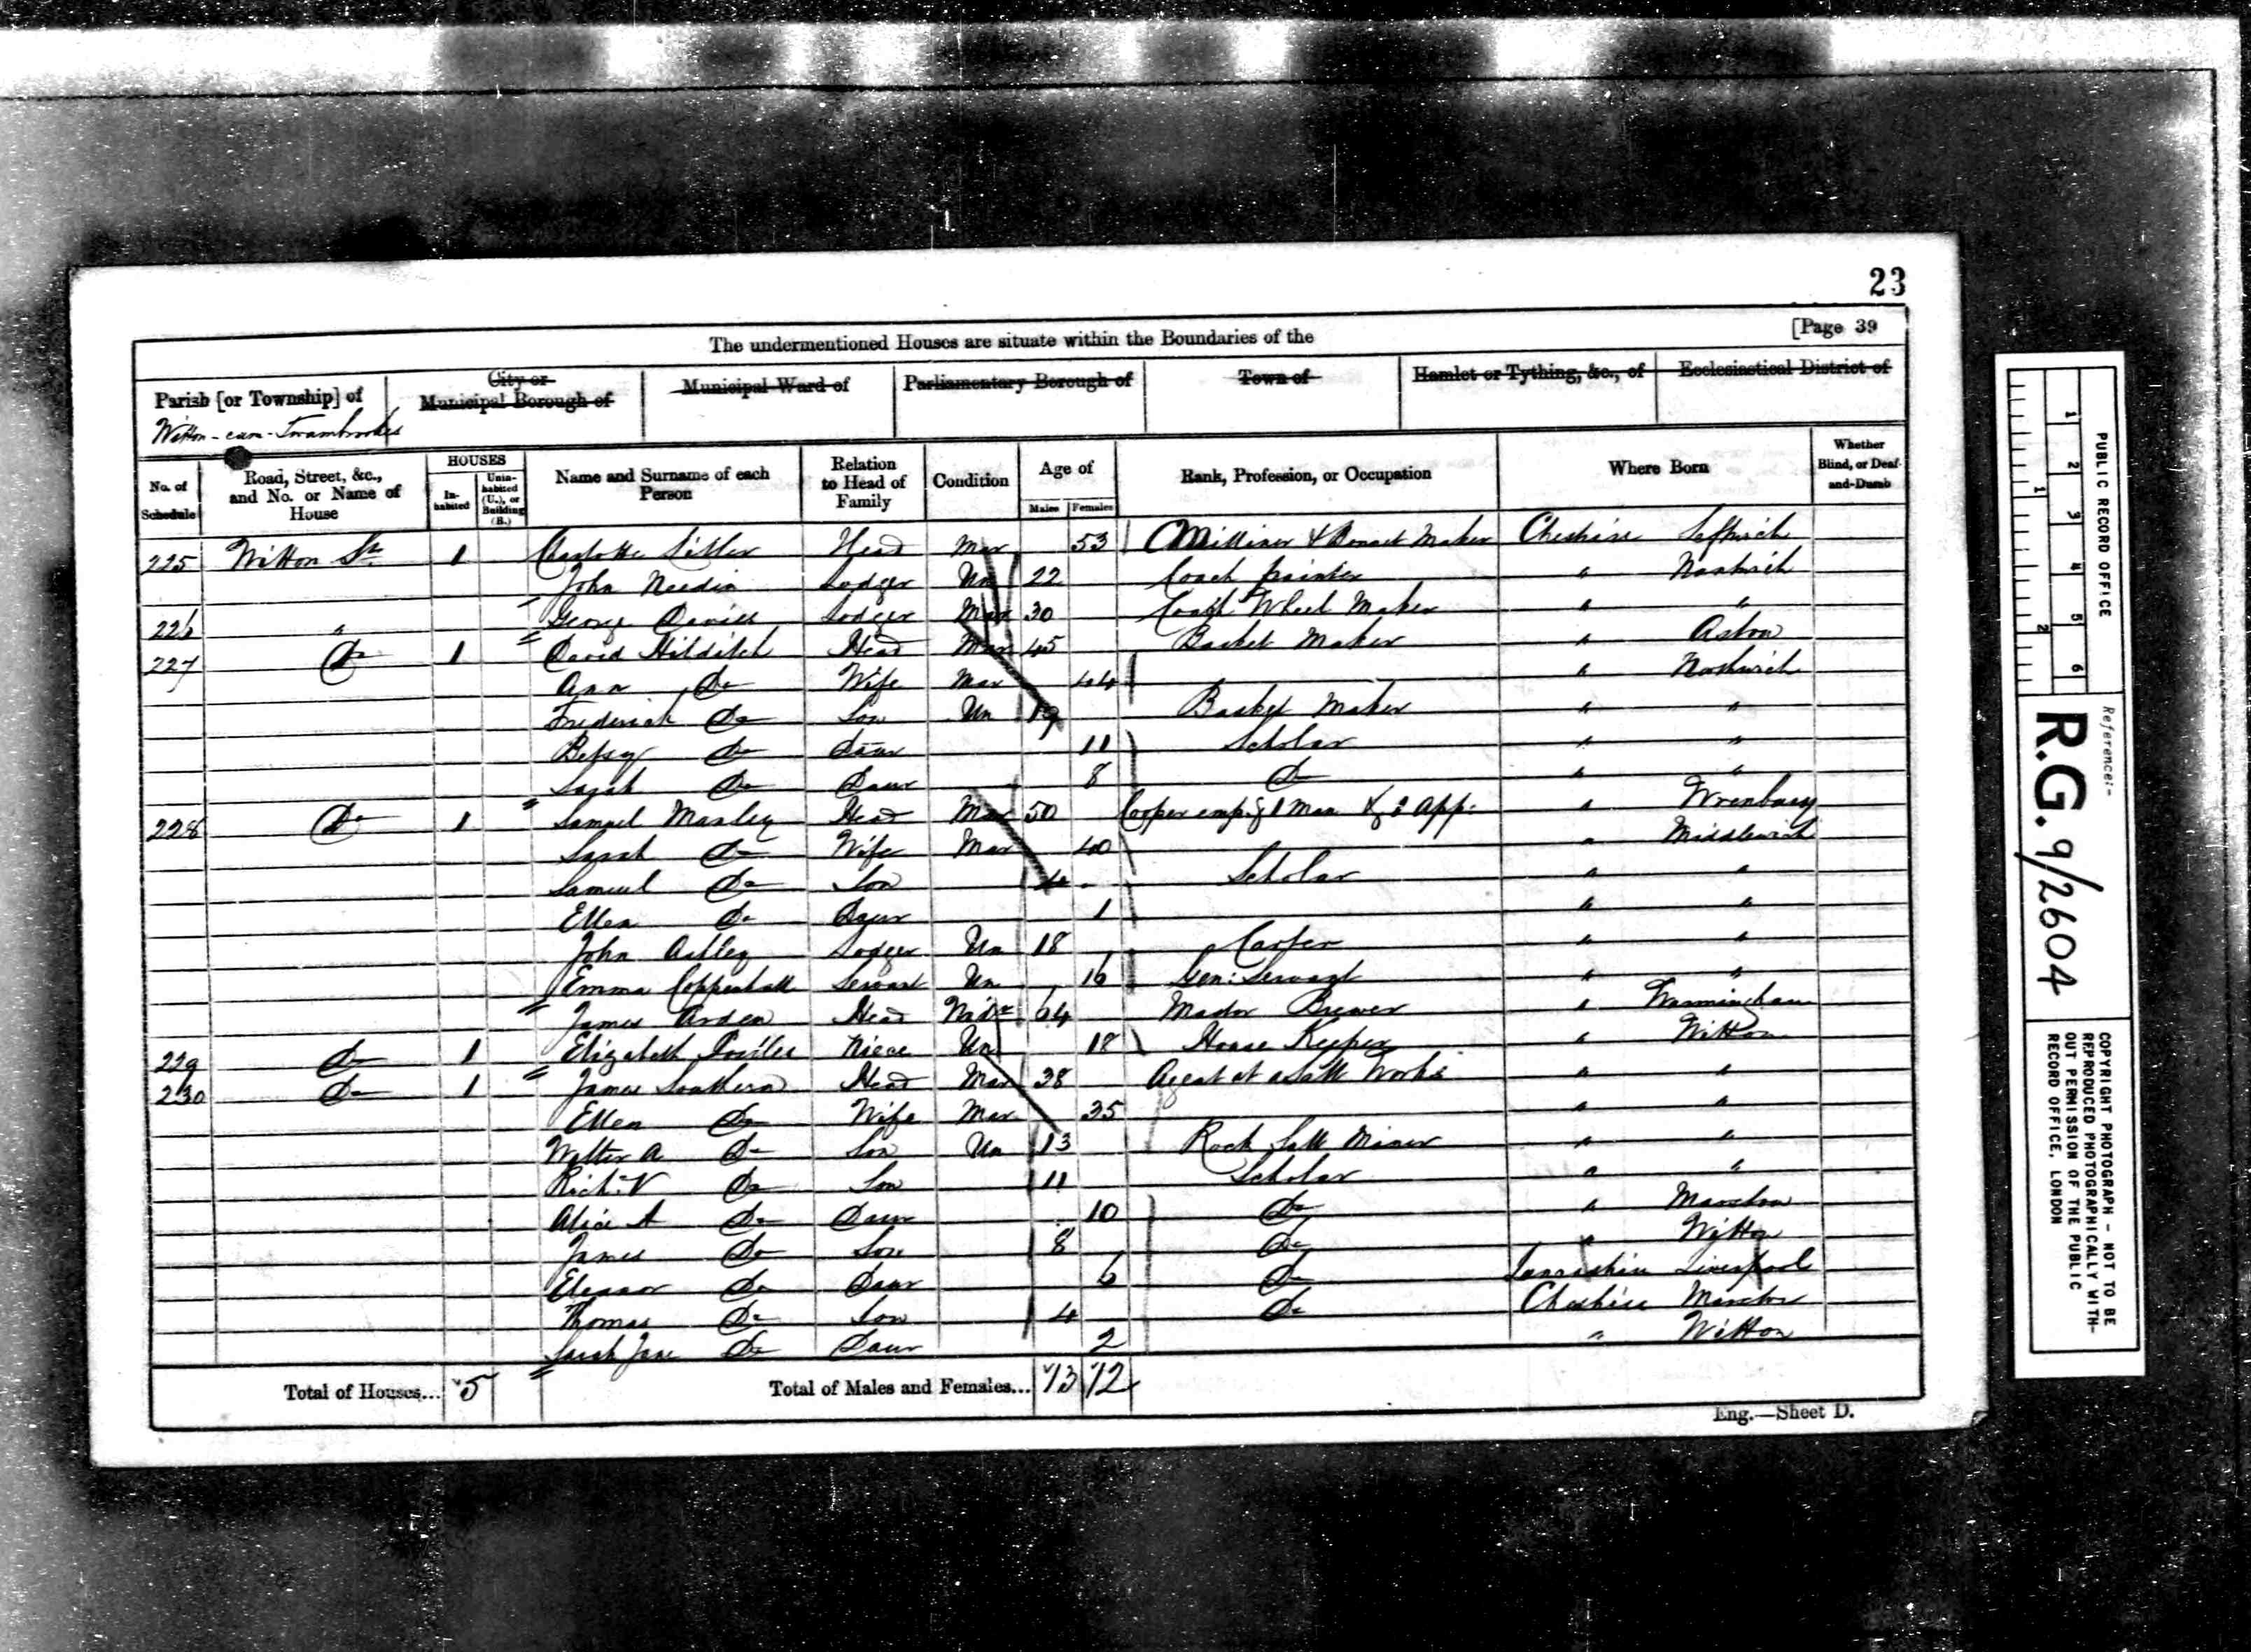 23
The undermentioned Houses are situate within the Boundaries of the [Page 39
Parish [or Township] of City or Municipal Borough of Municipal Ward of Parliamentary Borough of Town of Hamlet or Tything, &c., of Ecclesiastical District of
Witton-cum-Twambrookes
No. of Schedule Road, Street, &c., and No. or Name of House HOUSES Inhabited Uninhabited (U.), or Building (B.) Name and Surname of each Person Relation to Head of Family Condition Age of Males Females Rank, Profession, or Occupation Where Born Whether Blind, or Deaf-and-Dumb
225 Witton St. 1 Charlotte Head Mar 53 Milliner & Bonnet Maker Cheshire Leftwich
John Needin Lodger Un 22 Coach painter " Northwich
226 " George Davies Lodger Mar 30 Coach Wheel Maker " "
227 Do 1 David Hilditch Head Mar 45 Basket Maker " Aston
Ann Do Wife Mar 44 " Northwich
Frederick Do Son Un 19 Basket Maker " "
Betsy Do Daur 11 Scholar " "
Sarah Do Daur 8 Do " "
228 Do 1 Samuel Manley Head Mar 50 Cooper emp:g 1 Man & 2 App: " Wrenbury
Sarah Do Wife Mar 40 " Middlewich
Samuel Do Son 4 Scholar " "
Ellen Do Daur 1 " "
John Ashley Lodger Un 18 Carter " "
Emma Coppenhall Servant Un 16 Gen: Servant " "
James Arden Head Widr 64 Brewer " Warmingham
229 Do 1 Elizabeth Niece Un 18 House Keeper " Witton
230 Do 1 James Southern Head Mar 38 Agent at a Salt Works " "
Ellen Do Wife Mar 35 " "
Walter A Do Son Un 13 Rock Salt Miner " "
Rich: V Do Son 11 Scholar " "
Alice A Do Daur 10 Do " Marston
James Do Son 8 Do " Witton
Eleanor Do Daur 6 Do Lancashire Liverpool
Thomas Do Son 4 Do Cheshire Marston
Sarah Jane Do Daur 2 " Witton
Total of Houses... 5 Total of Males and Females... 13 12
Eng.—Sheet D.
1 2 3 4 5 6
1 2
PUBLIC RECORD OFFICE
Reference:-
R.G. 9/2604
COPYRIGHT PHOTOGRAPH - NOT TO BE
REPRODUCED PHOTOGRAPHICALLY WITH-
OUT PERMISSION OF THE PUBLIC
RECORD OFFICE, LONDON